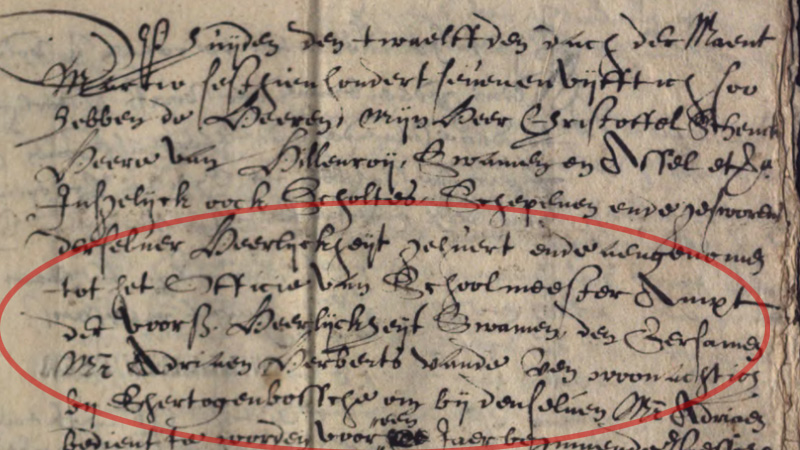 Op huijden den twaelffden dach der Maent
Martio sesthienhondert sevenenvijfftich soo
hebben de Heeren, Mijn Heer Christoffel Schenck
Heere van Hillenroij, Swamen en Assel etc.
Insgelijck oock Scholtes, Schepenen ende gesworen
derselver Heerlijckheijt gehuert ende aengenomen
tot het Officie van Schoolmeester Ampt
der voorß. Heerlijckheijt Swamen, den Eersamen
Mr. Adriaen Herberts vande Ven woonachtich
bij Shertogenbossche om bij denselven Mr. Adriaen
bedient te worden voor een Jaer beginnende